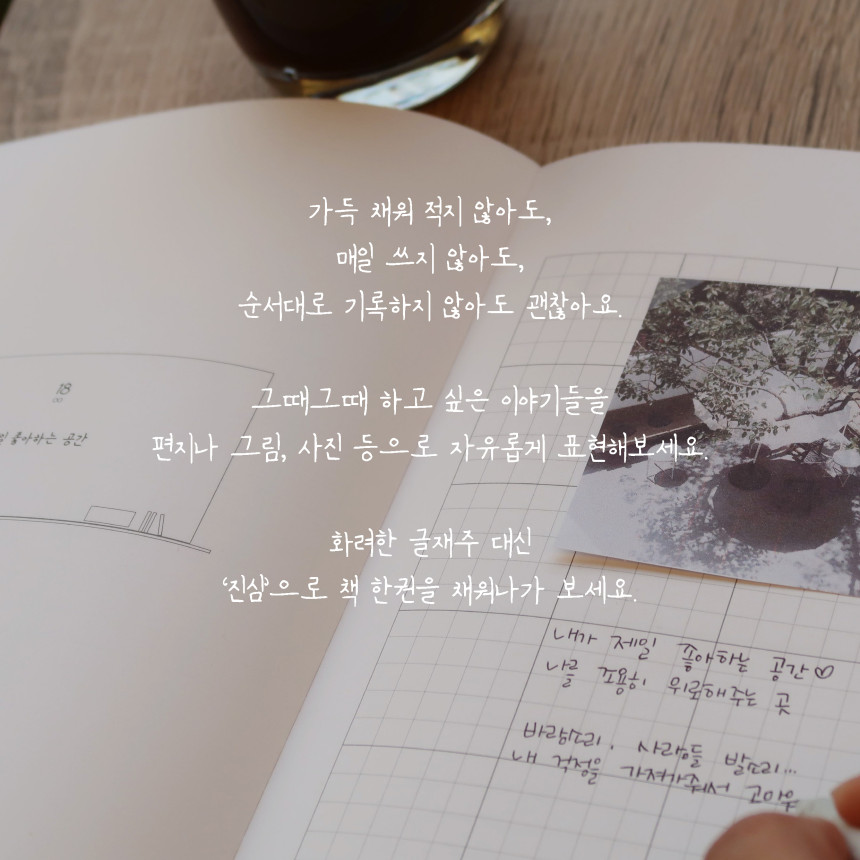 가득 채워 적지 않아도,
매일 쓰지 않아도,
순서대로 기록하지 않아도 괜찮아요.
그때그때 하고 싶은 이야기들을
편지나 그림, 사진 등으로 자유롭게 표현해보세요.
화려한 글재주 대신
‘진심’으로 책 한권을 채워나가 보세요.
18
좋아하는 공간
내가 제일 좋아하는 공간♡
나를 조용히 위로해주는 곳
바람소리, 사람들 발소리...
내 걱정을 가져가줘서 고마우